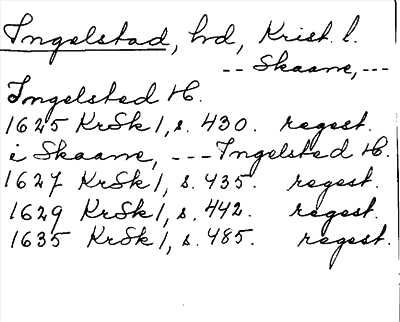 Ingelstad, hrd, Krist. l.
-- Skaane, ---
Ingelsted H.
1625 KrSk 1, s. 430. regest.
i Skaane, --- Ingelsted H.
1627 KrSk 1, s. 435. regest.
1629 KrSk 1, s. 442. regest.
1635 KrSk 1, s. 485. regest.